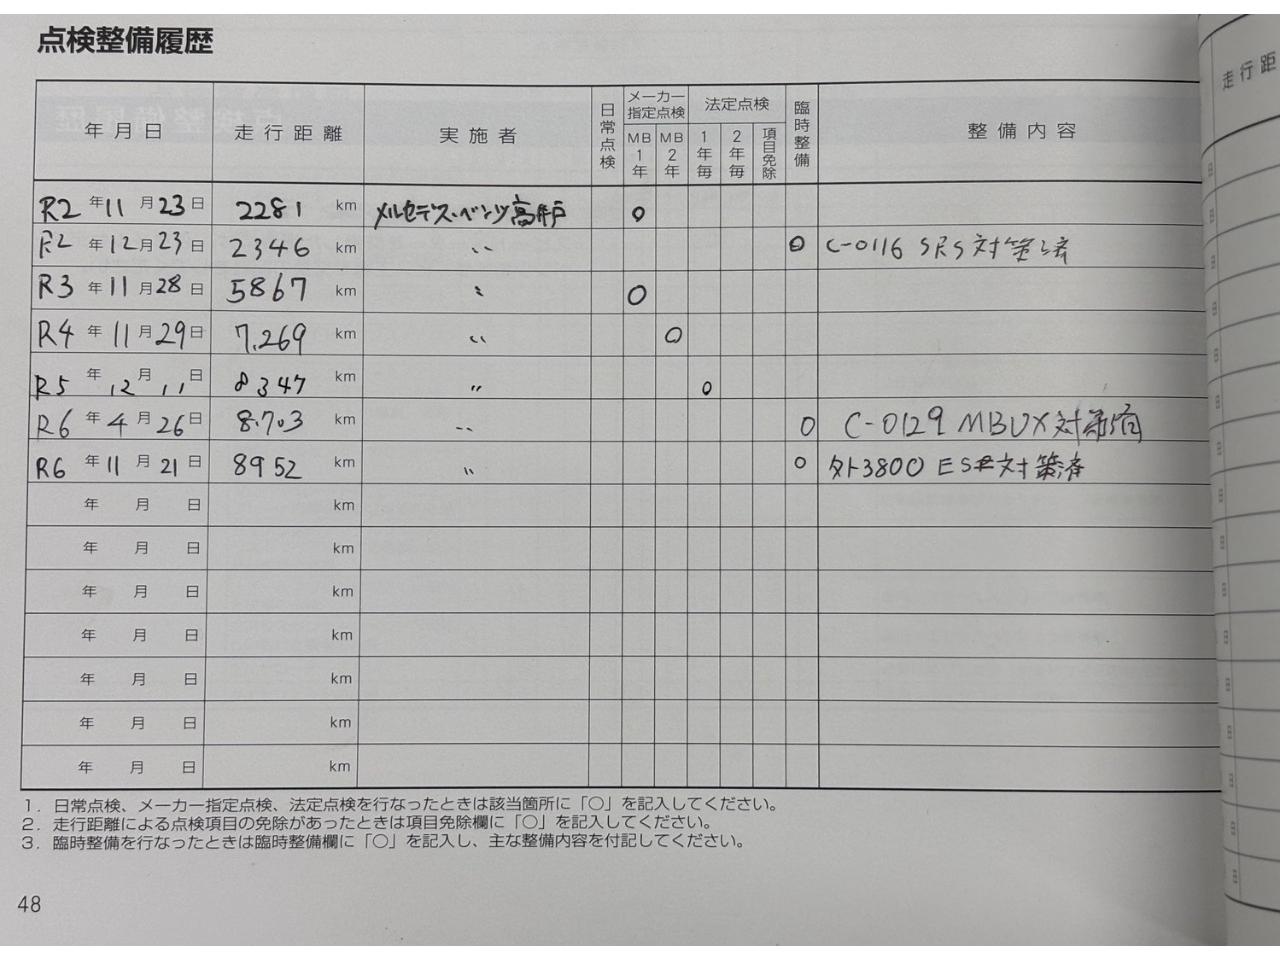 点検整備履歴
年月日 走行距離 実施者 日常点検 メーカー指定点検 MB1年 MB2年 法定点検 1年毎 2年毎 項目免除 臨時整備 整備内容
R2年11月23日 2281 km メルセデス・ベンツ高井戸 ○
R2年12月23日 2346 km 〃 ○ C-0116 SRS対策済
R3年11月28日 5867 km 〃 ○
R4年11月29日 7,269 km 〃 ○
R5年12月11日 8347 km 〃 ○
R6年4月26日 8.703 km 〃 ○ C-0129 MBUX対策済
R6年11月21日 8952 km 〃 ○ 外3800 対策済
年 月 日 km
年 月 日 km
年 月 日 km
年 月 日 km
年 月 日 km
年 月 日 km
年 月 日 km
1．日常点検、メーカー指定点検、法定点検を行なったときは該当箇所に「○」を記入してください。
2．走行距離による点検項目の免除があったときは項目免除欄に「○」を記入してください。
3．臨時整備を行なったときは臨時整備欄に「○」を記入し、主な整備内容を付記してください。
48
走行距